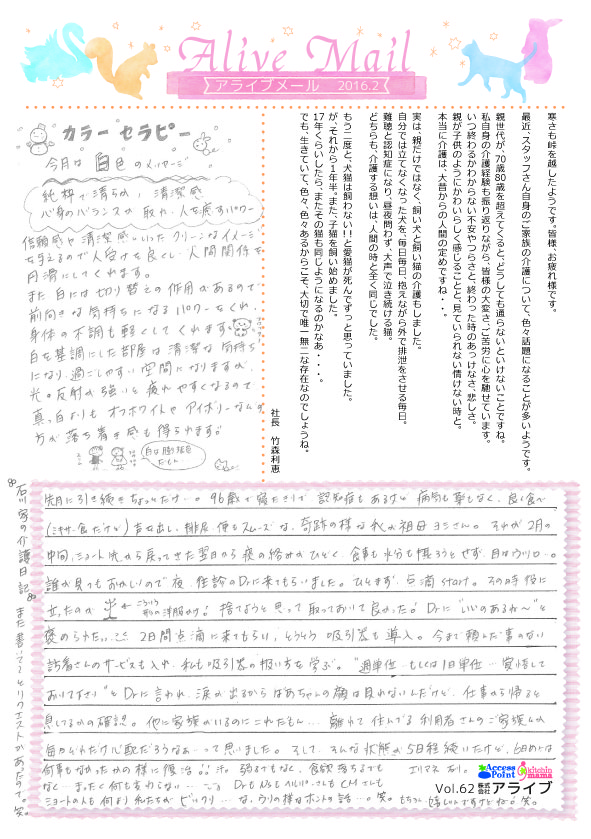 Alive Mail
アライブメール 2016.2
寒さも峠を越したようです。皆様、お疲れ様です。
最近、スタッフさん自身のご家族の介護について、色々話題になることが多いようです。
親世代が、70歳80歳を超えてくると、どうしても通らないといけないことですね。
私自身の介護経験も振り返りながら、皆様の大変さ、ご苦労に心を馳せています。
いつ終わるかわからない不安やつらさと、終わった時のあっけなさ、悲しさ。
親が子供のようにかわいらしく感じることと、見ていられない情けない時と。
本当に介護は、大昔からの人間の定めですね・・・
実は、親だけではなく、飼い犬と飼い猫の介護もしました。
自分では立てなくなった犬を、毎日毎日、抱えながら外で排泄をさせる毎日。
難聴と認知症になり、昼夜問わず、大声で泣き続ける猫。
どちらも、介護する想いは、人間の時と全く同じでした。
もう二度と、犬猫は飼わない!!と愛猫が死んでずっと思っていました。
が、それから1年半。また、子猫を飼い始めました。
17年くらいしたら、またその猫も同じようになるのかなあ・・・・。
でも、生きていて、色々、色々あるからこそ、大切で唯一無二な存在なのでしょうね。
社長 竹森利恵
カラーセラピー
今月は白色のメッセージ
純粋で清らか 清潔感
心身のバランスの取れ 人を癒すパワー
信頼感や清潔感といったクリーンなイメージ
を与えるので人受けも良くし、人間関係を
円滑にしてくれます。
また白には切り替えの作用があるので
前向きな気持ちになるパワーをくれ、
身体の不調も軽くしてくれます
白を基調にした部屋は清潔な気持ち
になり、過ごしやすい空間になりますが、
光の反射が強いと疲れやすくなるので
真っ白よりもオフホワイトやアイボリーなんかの
方が落ち着き感も得られます。
白は膨張色
石川家の介護日記 また書いてとリクエストがあったので。笑
先月に引き続きちょっとだけ…。96歳で寝たきりで認知症もあるけど病気も薬もなく、良く食べ
(ミキサー食だけど) 声を出し、排尿・便もスムーズな、奇跡の様な私の祖母ヨシさん。それが2月の
中旬、ショート先から戻ってきた翌日から痰の絡みがひどく、食事も水分も摂ろうとせず、目はウツロ…。
誰が見てもおかしいので夜、往診のDrに来てもらいました。ひとまず、点滴start。その時役に
立ったのが 捨てようと思って取っておいて良かった! Drに"いいのあるね〜"と
褒められた。ここ2日間点滴に来てもらい、とうとう吸引器も導入。今まで頼んだ事のない
訪看さんのサービスも入れ、私も吸引器の扱い方を学ぶ。"週単位…もしくは1日単位…覚悟して
おいて下さい"とDrに言われ、涙が出るからばあちゃんの顔は見れないんだけど、仕事から帰ると
息してるかの確認。他に家族がいるのにこれだもん… 離れて住んでる利用者さんのご家族なんか
毎日どれだけ心配だろうなあ…って思いました。そして、そんな状態が5日程続いたけど、6日めには
何事もなかったかの様に復活!!
なく…まったく何も変わらない…。DrもNsもヘルパーさんもCMさんも
ショートの人も何より私たちがビックリ…な、ウソの様なホントの話…。笑。
Access Point
kitchin mama
Vol.62 株式会社 アライブ